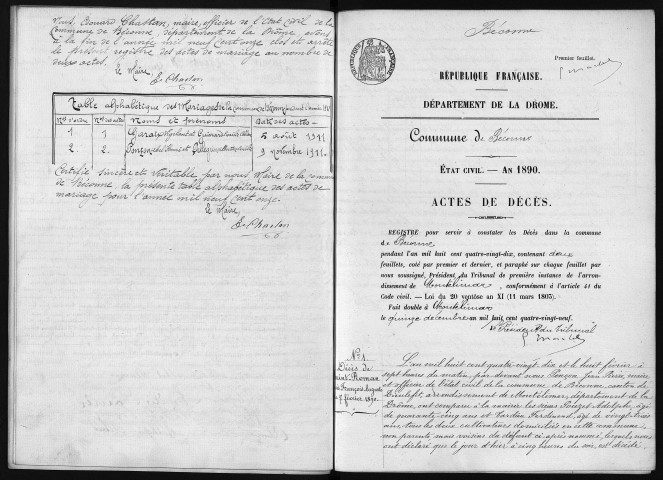 Nous, Edouard Chastan, maire, officier de l'Etat civil de la
Commune de Béconne, département de la Drôme, avons
à la fin de l'année mil neuf cent onze clos et arrêté
le présent registre des actes de mariage au nombre de
deux actes.
Le Maire,
E. Chastan
Table alphabétique des Mariages de la commune de
Nos d'ordre Nos des actes Noms et prénoms Date des actes
1 1 Garaix et 5 août 1911
2 2. Ponzon et 9 novembre 1911
Certifié sincère et véritable par nous Maire de la commune
de Béconne la présente table alphabétique des actes de
mariage pour l'année mil neuf cent onze.
Le Maire,
E. Chastan
Béconne
Premier feuillet.
RÉPUBLIQUE FRANÇAISE.
DÉPARTEMENT DE LA DROME.
Commune de Béconne
ÉTAT CIVIL. — AN 1890.
ACTES DE DÉCÈS.
REGISTRE pour servir à constater les Décès dans la commune
de Béconne
pendant l'an mil huit cent quatre-vingt-dix, contenant deux
feuillets, coté par premier et dernier, et paraphé sur chaque feuillet par
nous soussigné, Président du Tribunal de première instance de l'arron-
dissement de Montélimar, conformément à l'article 41 du
Code civil. — Loi du 20 ventôse an XI (11 mars 1803).
Fait double à Montélimar
le quinze décembre an mil huit cent quatre-vingt-neuf.
Le Président du Tribunal
No 1.
Décès de
Saint Roman
François Auguste
7 février 1890.
L'an mil huit cent quatre-vingt-dix et le huit février à
sept heures du matin, par devant nous Ponçon Jean Pierre, maire
et officier de l'état civil de la commune de Béconne, canton de
Dieulefit, arrondissement de Montélimar, département de la
Drôme, ont comparu à la mairie les sieurs Pouzet Adolphe, âgé
de quarante-cinq ans et Tardieu Ferdinand, âgé de vingt-trois
ans, tous les deux cultivateurs domiciliés en cette commune,
non parents mais voisins du défunt ci-après nommé, lesquels nous
ont déclaré que le jour d'hier à cinq heures du soir, est décédé